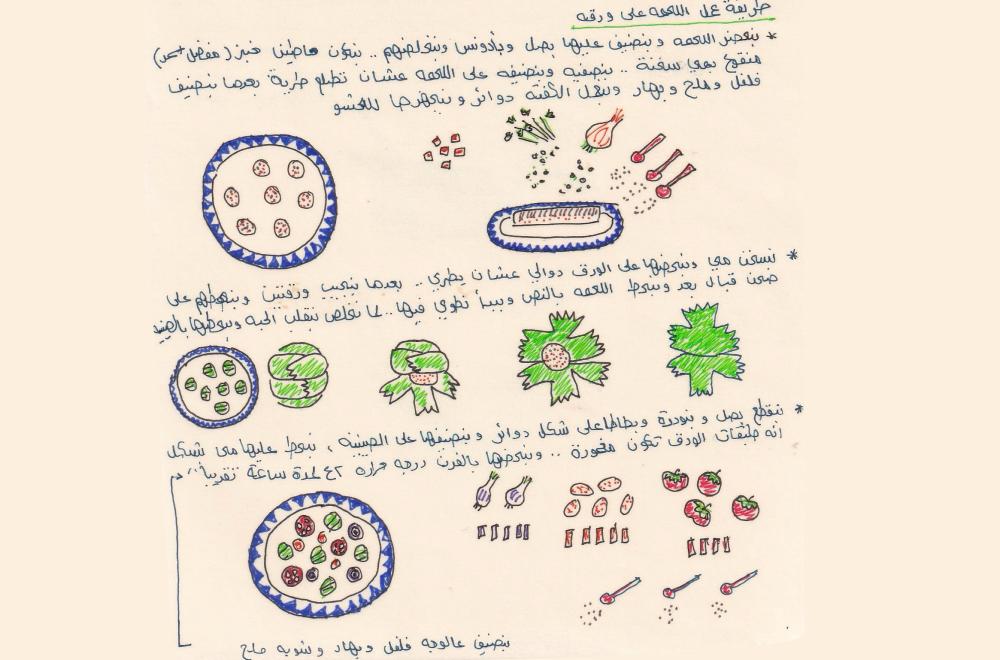 طريقة عمل اللحمه على ورقه
* بنحضر اللحمه و بنضيف عليها بصل وبقدونس وبنخلطهم .. بنكون حاطين خبز (مفضل حمر)
منقوع بمي سخنة .. بنصفيه وبنضيفه على اللحمه عشان تطلع طرية بعدها بنضيف
فلفل وملح وبهار وبنعمل الكفته دوائر و بنجهزها للحشو
* نسخن مي وبنحطها على الورق دوالي عشان يطري .. بعدها بنجيب ورقتين وبنحطهم على
صحن قبال بعد وبنحط اللحمه بالنص وبنبدأ نطوي فيها .. لما نخلص بنقلب الحبه وبنحطها بالصينيه
* بنقطع بصل و بندورة وبطاطا على شكل دوائر وبنضيفها على الصينيه ، بنحط عليها مي بشكل
انه طبقات الورق تكون مغمورة .. وبنحطها بالفرن درجه حراره ٤٢ لمدة ساعة تقريباً
بنضيف عالوجه فلفل وبهار وشوية ملح